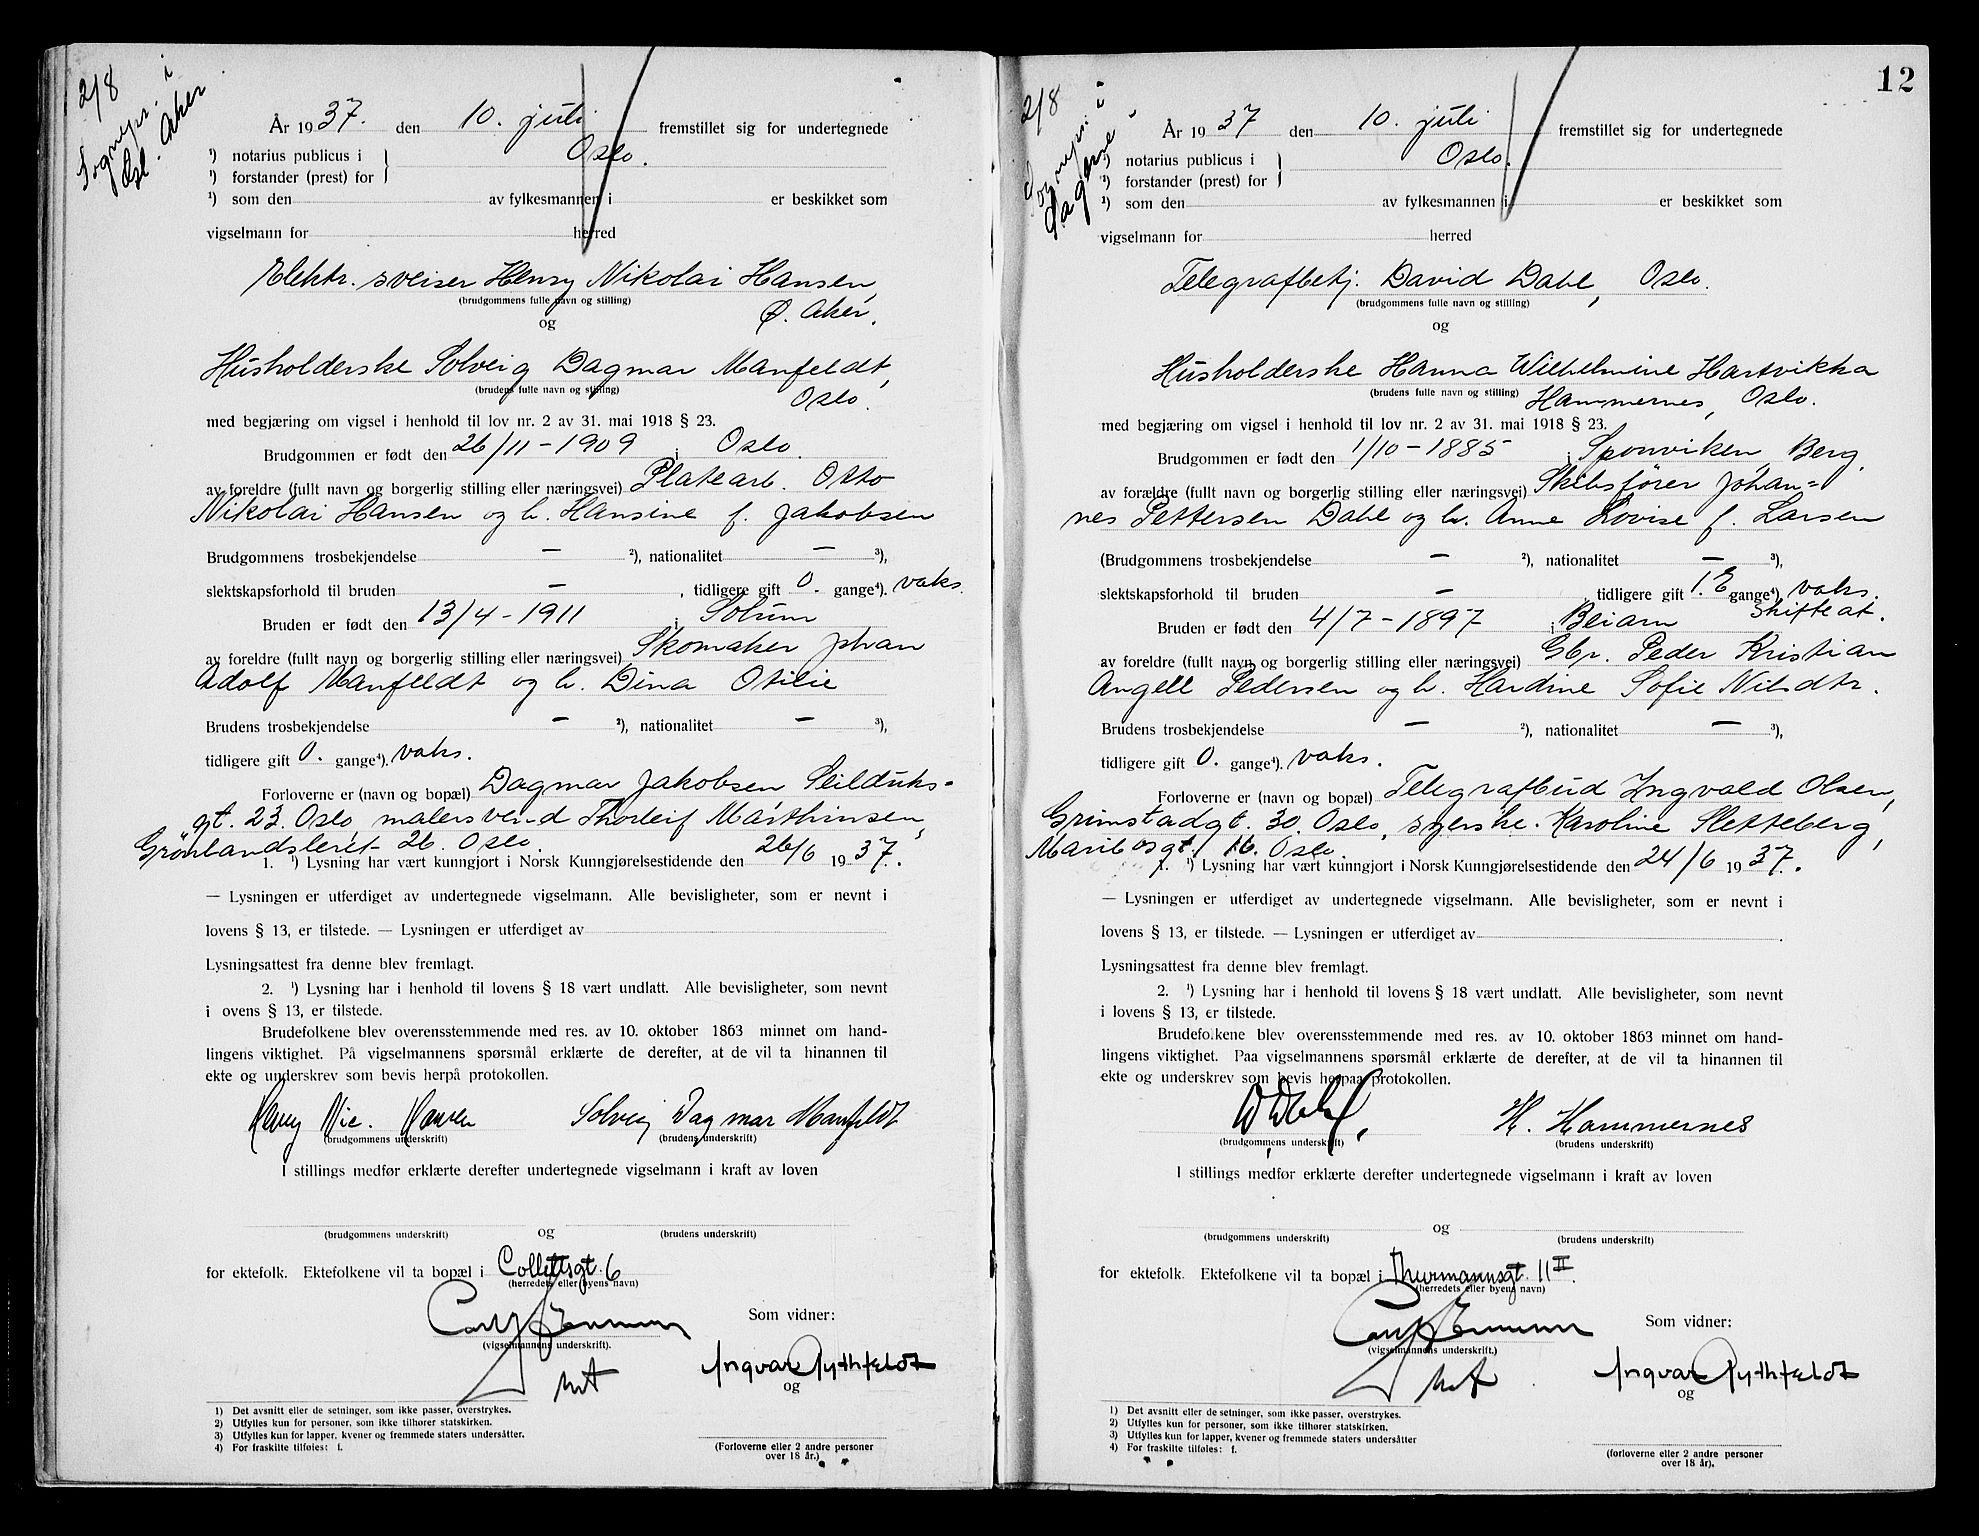 2/8
Sognepr. i
Øsl. Aker
År 1937. den 10. juli fremstillet sig for undertegnede
¹) notarius publicus i } Oslo.
¹) forstander (prest) for
¹) som den av fylkesmannen i er beskikket som
vigselmann for herred
Elektr. sveiser Henry Nikolai Hansen,
(brudgommens fulle navn og stilling)
Ø. Aker.
og
Husholderske Solveig Dagmar Manfeldt,
(brudens fulle navn og stilling)
Oslo.
med begjæring om vigsel i henhold til lov nr. 2 av 31. mai 1918 § 23.
Brudgommen er født den 26/11-1909 i Oslo.
av foreldre (fullt navn og borgerlig stilling eller næringsvei) Platearb. Otto
Nikolai Hansen og h. Hansine f. Jakobsen
Brudgommens trosbekjendelse — ²), nationalitet — ³),
slektskapsforhold til bruden — , tidligere gift 0. gange⁴). vaks.
Bruden er født den 13/4-1911 i Solum
av foreldre (fullt navn og borgerlig stilling eller næringsvei) Skomaker Johan
Adolf Manfeldt og h. Dina Otilie
Brudens trosbekjendelse — ²), nationalitet — ³),
tidligere gift 0. gange⁴). vaks.
Forloverne er (navn og bopæl) Dagmar Jakobsen Seilduks-
gt. 23. Oslo, malersvend Thorleif Marthinsen,
Grønlandsleret 26. Oslo.
1. ¹) Lysning har vært kunngjort i Norsk Kunngjørelsestidende den 26/6 1937.
— Lysningen er utferdiget av undertegnede vigselmann. Alle bevisligheter, som er nevnt i
lovens § 13, er tilstede. — Lysningen er utferdiget av
Lysningsattest fra denne blev fremlagt.
2. ¹) Lysning har i henhold til lovens § 18 vært undlatt. Alle bevisligheter, som nevnt
i ovens § 13, er tilstede.
Brudefolkene blev overensstemmende med res. av 10. oktober 1863 minnet om hand-
lingens viktighet. På vigselmannens spørsmål erklærte de derefter, at de vil ta hinannen til
ekte og underskrev som bevis herpå protokollen.
Henry Nic. Hansen Solveig Dagmar Manfeldt
(brudgommens underskrift) (brudens underskrift)
I stillings medfør erklærte derefter undertegnede vigselmann i kraft av loven
og
(brudgommens underskrift) (brudens underskrift)
for ektefolk. Ektefolkene vil ta bopæl i Collettsgt. 6
(herredets eller byens navn)
Som vidner:
(vigselmannens underskrift).
Ingvar Rythfeldt
og
1) Det avsnitt eller de setninger, som ikke passer, overstrykes.
2) Utfylles kun for personer, som ikke tilhører statskirken.
3) Utfylles kun for lapper, kvener og fremmede staters undersåtter.
4) For fraskilte tilføies: f.
(Forloverne eller 2 andre personer
over 18 år.)
12
2/8
Sognepr. i
År 1937 den 10. juli fremstillet sig for undertegnede
¹) notarius publicus i } Oslo.
¹) forstander (prest) for
¹) som den av fylkesmannen i er beskikket som
vigselmann for herred
Telegrafbetj. David Dahl, Oslo.
(brudgommens fulle navn og stilling)
og
Husholderske Hanna Wilhelmine Hartvikka
(brudens fulle navn og stilling) Hammernes, Oslo.
med begjæring om vigsel i henhold til lov nr. 2 av 31. mai 1918 § 23.
Brudgommen er født den 1/10-1885 i Sponviken, Berg,
av forældre (fullt navn og borgerlig stilling eller næringsvei) Skibsfører Johan=
nes Pettersen Dahl og h. Anne Lovise f. Larsen
(Brudgommens trosbekjendelse — ²), nationalitet — ³),
slektskapsforhold til bruden — , tidligere gift 1. E gange⁴). vaks.
skifteat.
Bruden er født den 4/7-1897 i Beiarn
av foreldre (fullt navn og borgerlig stilling eller næringsvei) Gbr. Peder Kristian
Angell Pedersen og h. Hardine Sofie Nilsdtr.
Brudens trosbekjendelse — ²), nationalitet — ³),
tidligere gift 0. gange⁴). vaks.
Forloverne er (navn og bopæl) Telegrafbud Ingvald Olsen,
Grimstadgt. 30. Oslo, syerske Karoline Sletteberg,
Maribosgt. 16. Oslo.
1. ¹) Lysning har vært kunngjort i Norsk Kunngjørelsestidende den 24/6 1937.
— Lysningen er utferdiget av undertegnede vigselmann. Alle bevisligheter, som er nevnt i
lovens § 13, er tilstede. — Lysningen er utferdiget av
Lysningsattest fra denne blev fremlagt.
2. ¹) Lysning har i henhold til lovens § 18 vært undlatt. Alle bevisligheter, som nevnt
i lovens § 13, er tilstede.
Brudefolkene blev overensstemmende med res. av 10. oktober 1863 minnet om hand-
lingens viktighet. Paa vigselmannens spørsmål erklærte de derefter, at de vil ta hinannen til
ekte og underskrev som bevis herpaa protokollen.
D. Dahl. H. Hammernes
(brudgommens underskrift) (brudens underskrift)
I stillings medfør erklærte derefter undertegnede vigselmann i kraft av loven
og
(brudgommens underskrift) (brudens underskrift)
for ektefolk. Ektefolkene vil ta bopæl i Thurmannsgt. 11 II.
(herredets eller byens navn)
Som vidner:
(vigselmannens underskrift.)
Ingvar Rythfeldt
og
1) Det avsnitt eller de setninger, som ikke passer, overstrykes.
2) Utfylles kun for personer, som ikke tilhører statskirken.
3) Utfylles kun for lapper, kvener og fremmede staters undersåtter
4) For fraskilte tilføies: f.
(forloverne eller 2 andre personer
over 18 år).